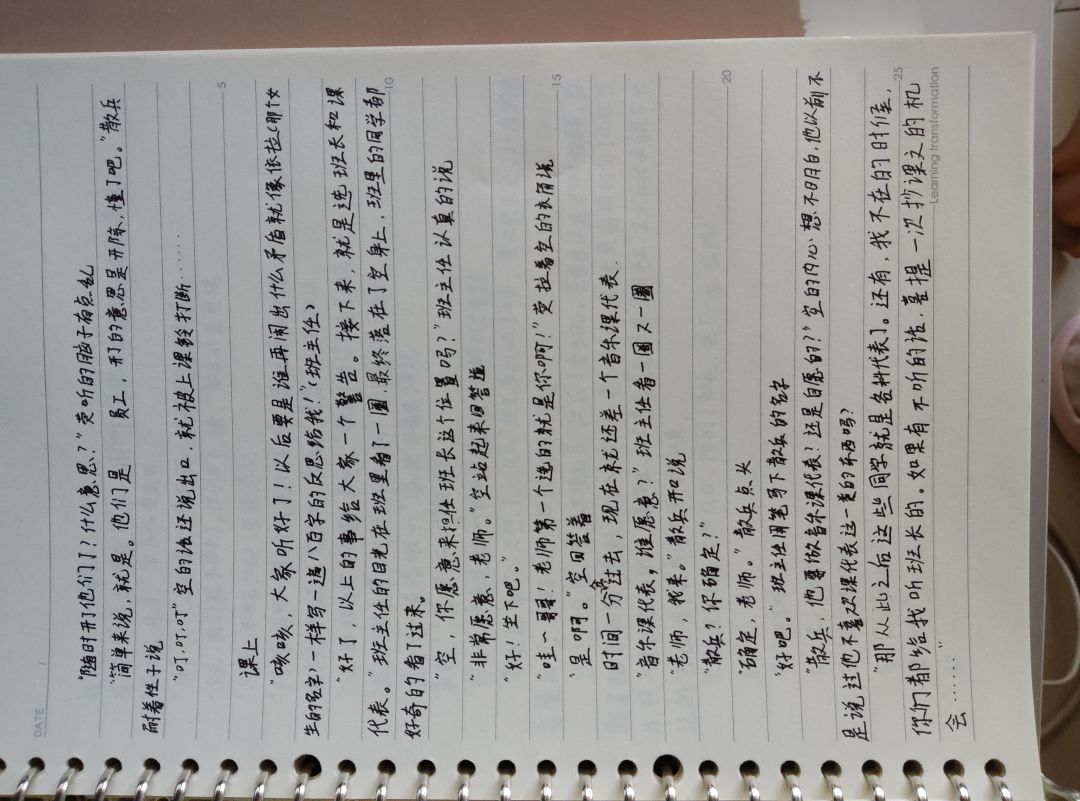 DATE
"随时开他们了？什么意思？"荧听的脑子有点乱
"简单来说，就是。他们是 员工，开的意思是开除，懂了吧。"散兵
耐着性子说
"叮，叮，叮"空的话还说出口，就被上课铃打断……
5
课上
"咳咳，大家听好了！以后要是谁再闹出什么矛盾就像依拉（那个女
生的名字）一样写一遍八百字的反思给我！"（班主任）
"好了，以上的事给大家一个警告。接下来，就是选班长和课
10
代表。"班主任的目光在班里看了一圈最终落在了空身上，班里的同学都
好奇的看了过来。
"空，你愿意来担任班长这个位置吗？"班主任认真的说
"非常愿意，老师。"空站起来回答道
"好！坐下吧。"
15
"哇～哥哥！老师第一个选的就是你啊！"荧拉着空的衣角说
"是啊。"空回答着
时间一分分过去，现在就还差一个音乐课代表.
"音乐课代表，谁愿意？"班主任看一圈又一圈
"老师，我来。"散兵开口说
20
"散兵？你确定？"
"确定，老师。"散兵点头
"好吧。"班主任用笔写下散兵的名字
"散兵，他要做音乐课代表？还是自愿的？"空的内心想不明白，他以前不
是说过他不喜欢课代表这一类的东西吗？
"那从此之后这些同学就是各科代表了。还有，我不在的时候，
25
你们都给我听班长的。如果有不听的话，喜提一次抄课文的机
会……"
Learning transformation